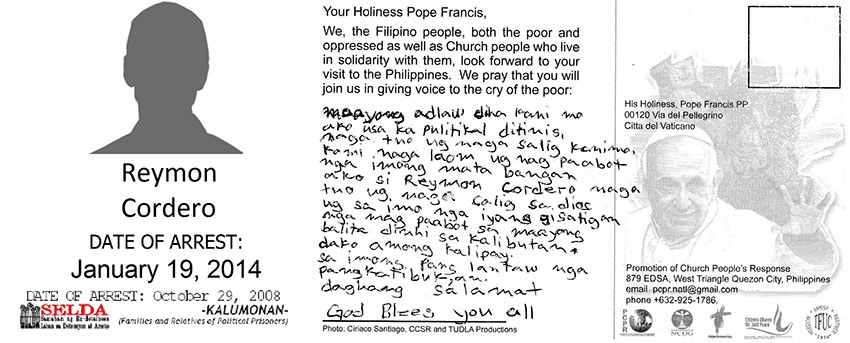 Reymon
Cordero
DATE OF ARREST:
January 19, 2014
DATE OF ARREST: October 29, 2008
SELDA
Samahan ng Ex-Detainees
Laban sa Detensyon at Aresto
-KALUMONAN-
(Families and Relatives of Political Prisoners)
Your Holiness Pope Francis,
We, the Filipino people, both the poor and
oppressed as well as Church people who live
in solidarity with them, look forward to your
visit to the Philippines. We pray that you will
join us in giving voice to the cry of the poor:
maayong adlaw diha kani mo
ako usa ka pulitikal ditinis,
naga tuo ug naga salig kanimo,
kami naga laom ug nag paabot
nga imong mata bangan
ako si Reymon Cordero naga
tuo ug naga salig sa dios
ug sa imo nga iyang gisatigan
nga mag paabot sa maayong
balita dinhi sa kalibutan,
dako among kalipay.
sa imong pang lantaw nga
pangkatibukjan.
daghang salamat
God Bless you all
Photo: Ciriaco Santiago, CCSR and TUDLA Productions
His Holiness, Pope Francis PP
00120 Via del Pellegrino
Citta del Vaticano
Promotion of Church People's Response
879 EDSA, West Triangle Quezon City, Philippines
email pcpr.natl@gmail.com
phone +632-925-1786.
PCPR
NCDG
TFUC